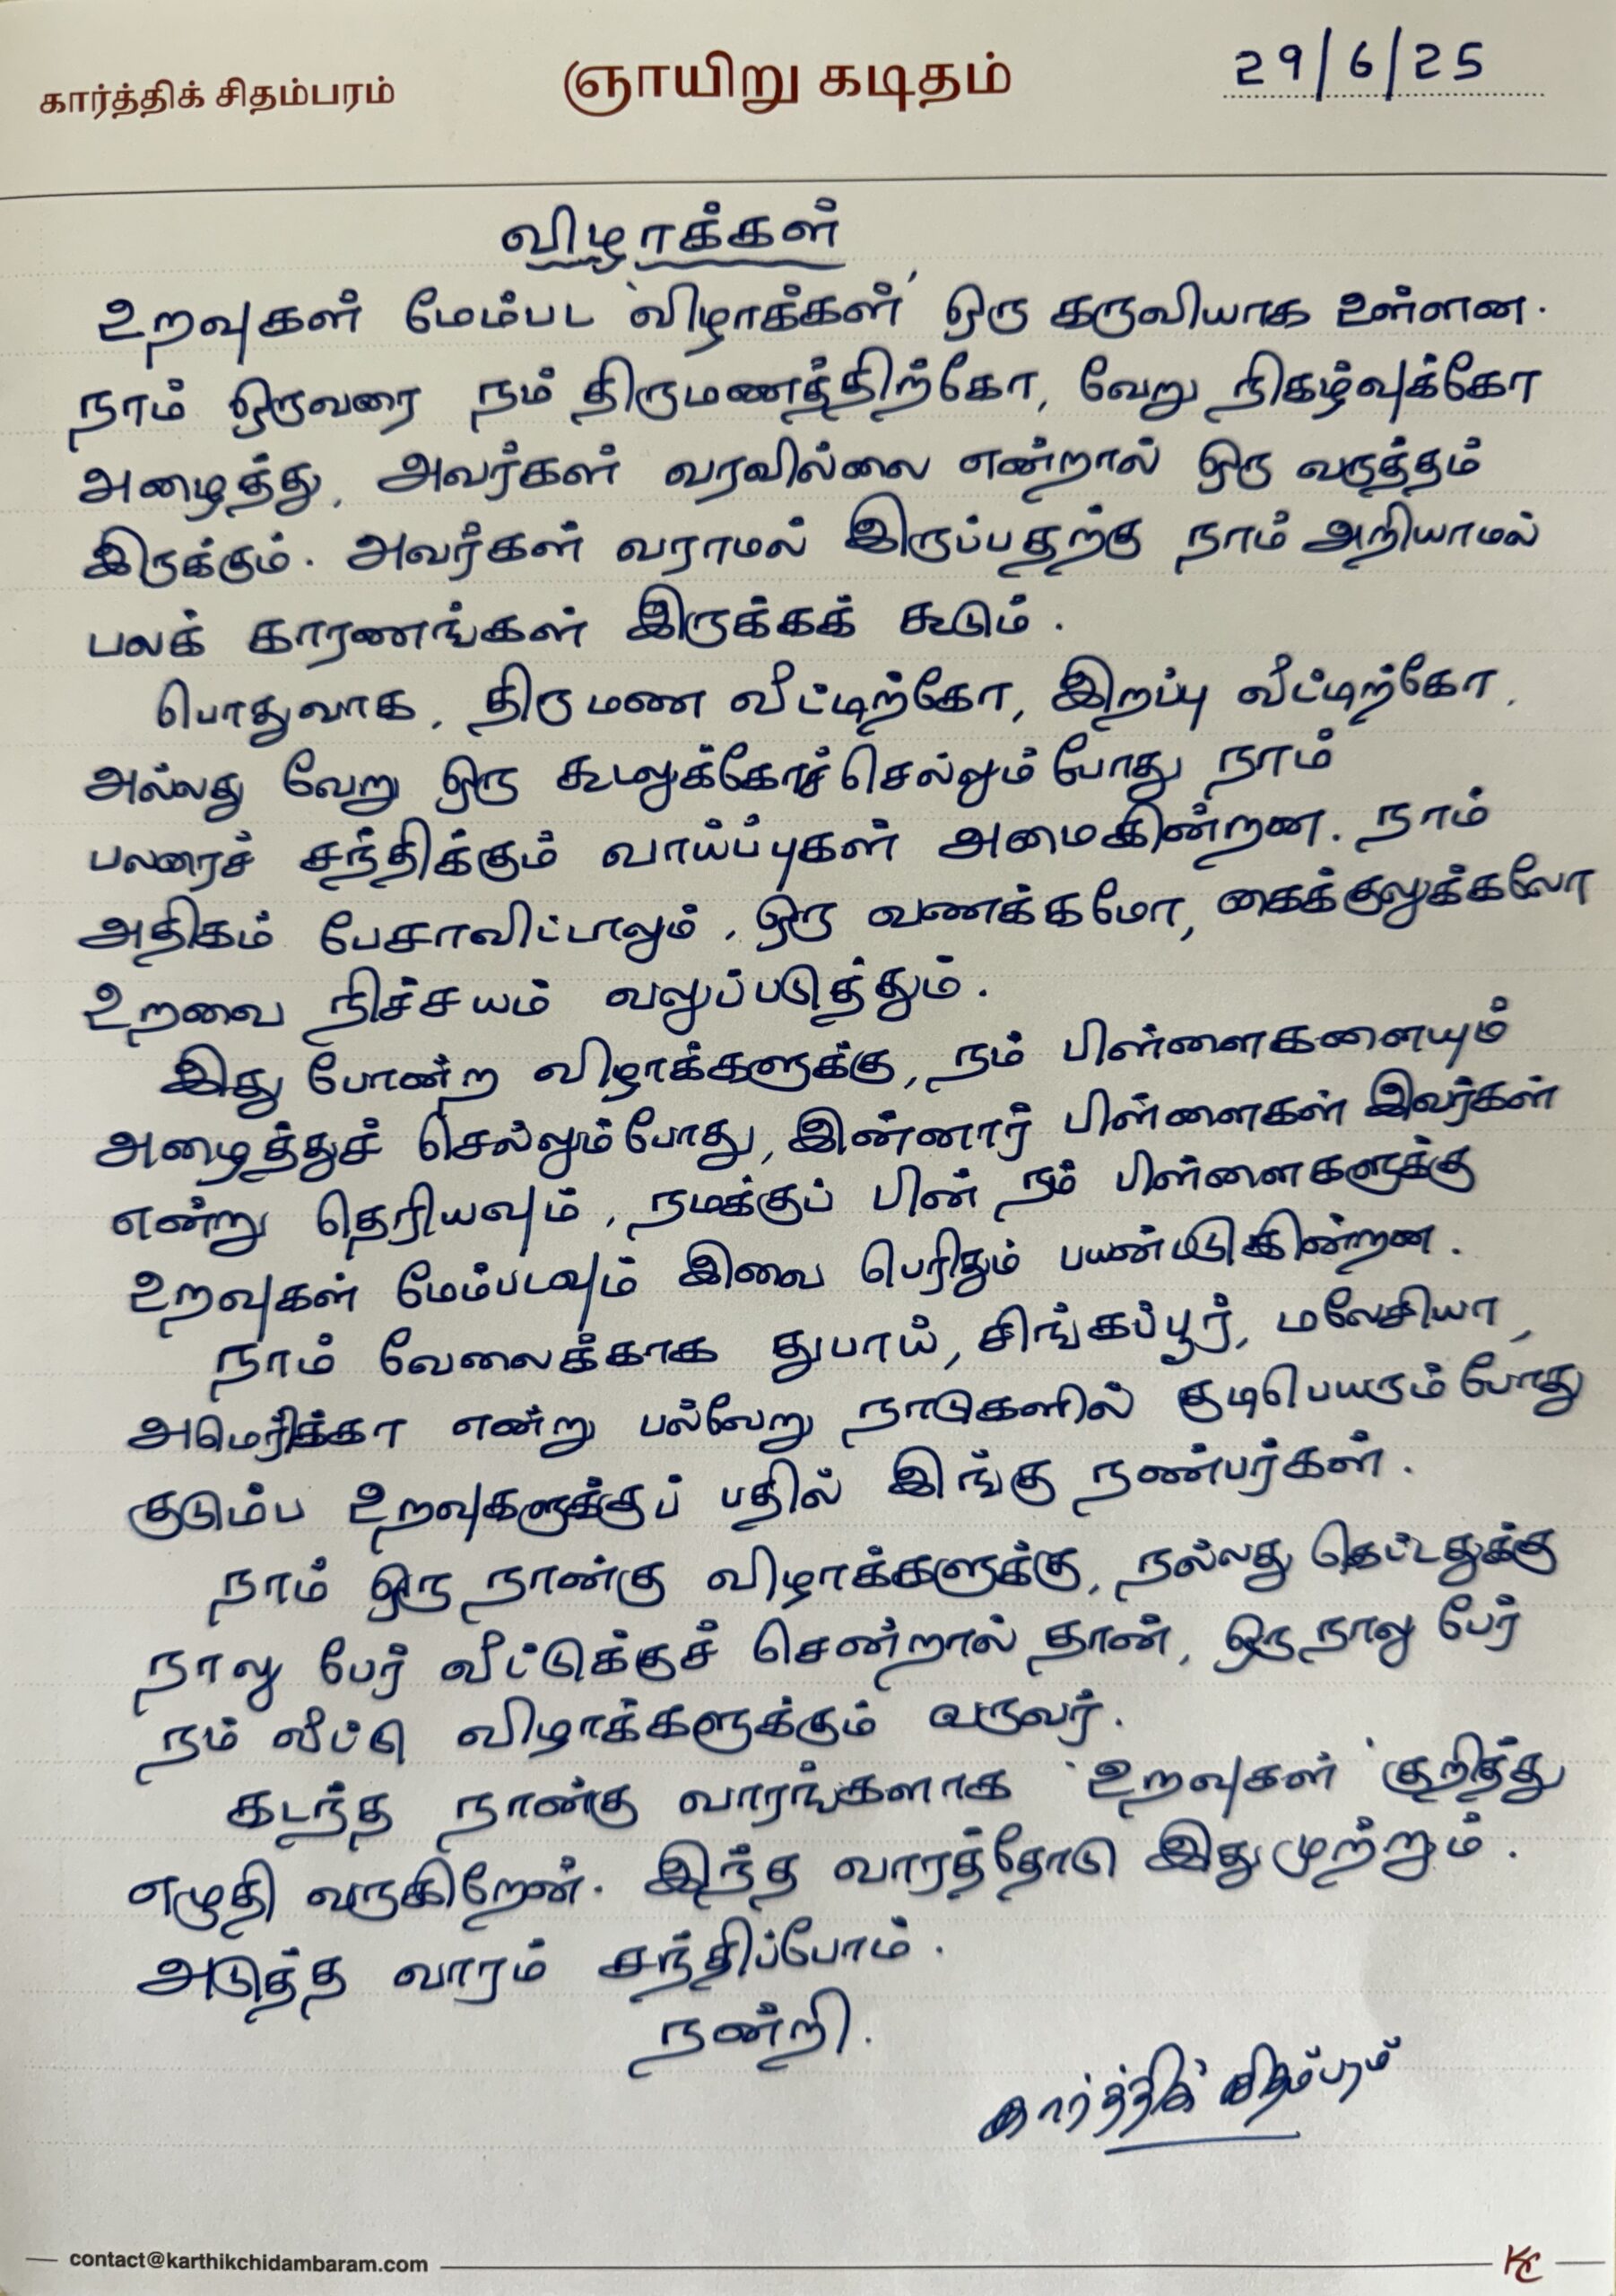 கார்த்திக் சிதம்பரம்
ஞாயிறு கடிதம்
29/6/25
விழாக்கள்
உறவுகள் மேம்பட 'விழாக்கள்' ஒரு கருவியாக உள்ளன.
நாம் ஒருவரை நம் திருமணத்திற்கோ, வேறு நிகழ்வுக்கோ
அழைத்து, அவர்கள் வரவில்லை என்றால் ஒரு வருத்தம்
இருக்கும். அவர்கள் வராமல் இருப்பதற்கு நாம் அறியாமல்
பலக் காரணங்கள் இருக்கக் கூடும்.
பொதுவாக, திருமண வீட்டிற்கோ, இறப்பு வீட்டிற்கோ,
அல்லது வேறு ஒரு கூடலுக்கோச் செல்லும் போது நாம்
பலரைச் சந்திக்கும் வாய்ப்புகள் அமைகின்றன. நாம்
அதிகம் பேசாவிட்டாலும், ஒரு வணக்கமோ, கைக்குலுக்கலோ
உறவை நிச்சயம் வலுப்படுத்தும்.
இது போன்ற விழாக்களுக்கு, நம் பிள்ளைகளையும்
அழைத்துச் செல்லும்போது, இன்னார் பிள்ளைகள் இவர்கள்
என்று தெரியவும், நமக்குப் பின் நம் பிள்ளைகளுக்கு
உறவுகள் மேம்படவும் இவை பெரிதும் பயன்படுகின்றன.
நாம் வேலைக்காக துபாய், சிங்கப்பூர், மலேசியா,
அமெரிக்கா என்று பல்வேறு நாடுகளில் குடிபெயரும் போது
குடும்ப உறவுகளுக்குப் பதில் இங்கு நண்பர்கள்.
நாம் ஒரு நான்கு விழாக்களுக்கு, நல்லது கெட்டதுக்கு
நாலு பேர் வீட்டுக்குச் சென்றால் தான், ஒரு நாலு பேர்
நம் வீட்டு விழாக்களுக்கும் வருவர்.
கடந்த நான்கு வாரங்களாக 'உறவுகள்' குறித்து
எழுதி வருகிறேன். இந்த வாரத்தோடு இது முற்றும்.
அடுத்த வாரம் சந்திப்போம்.
நன்றி.
கார்த்திக் சிதம்பரம்
contact@karthikchidambaram.com
KC